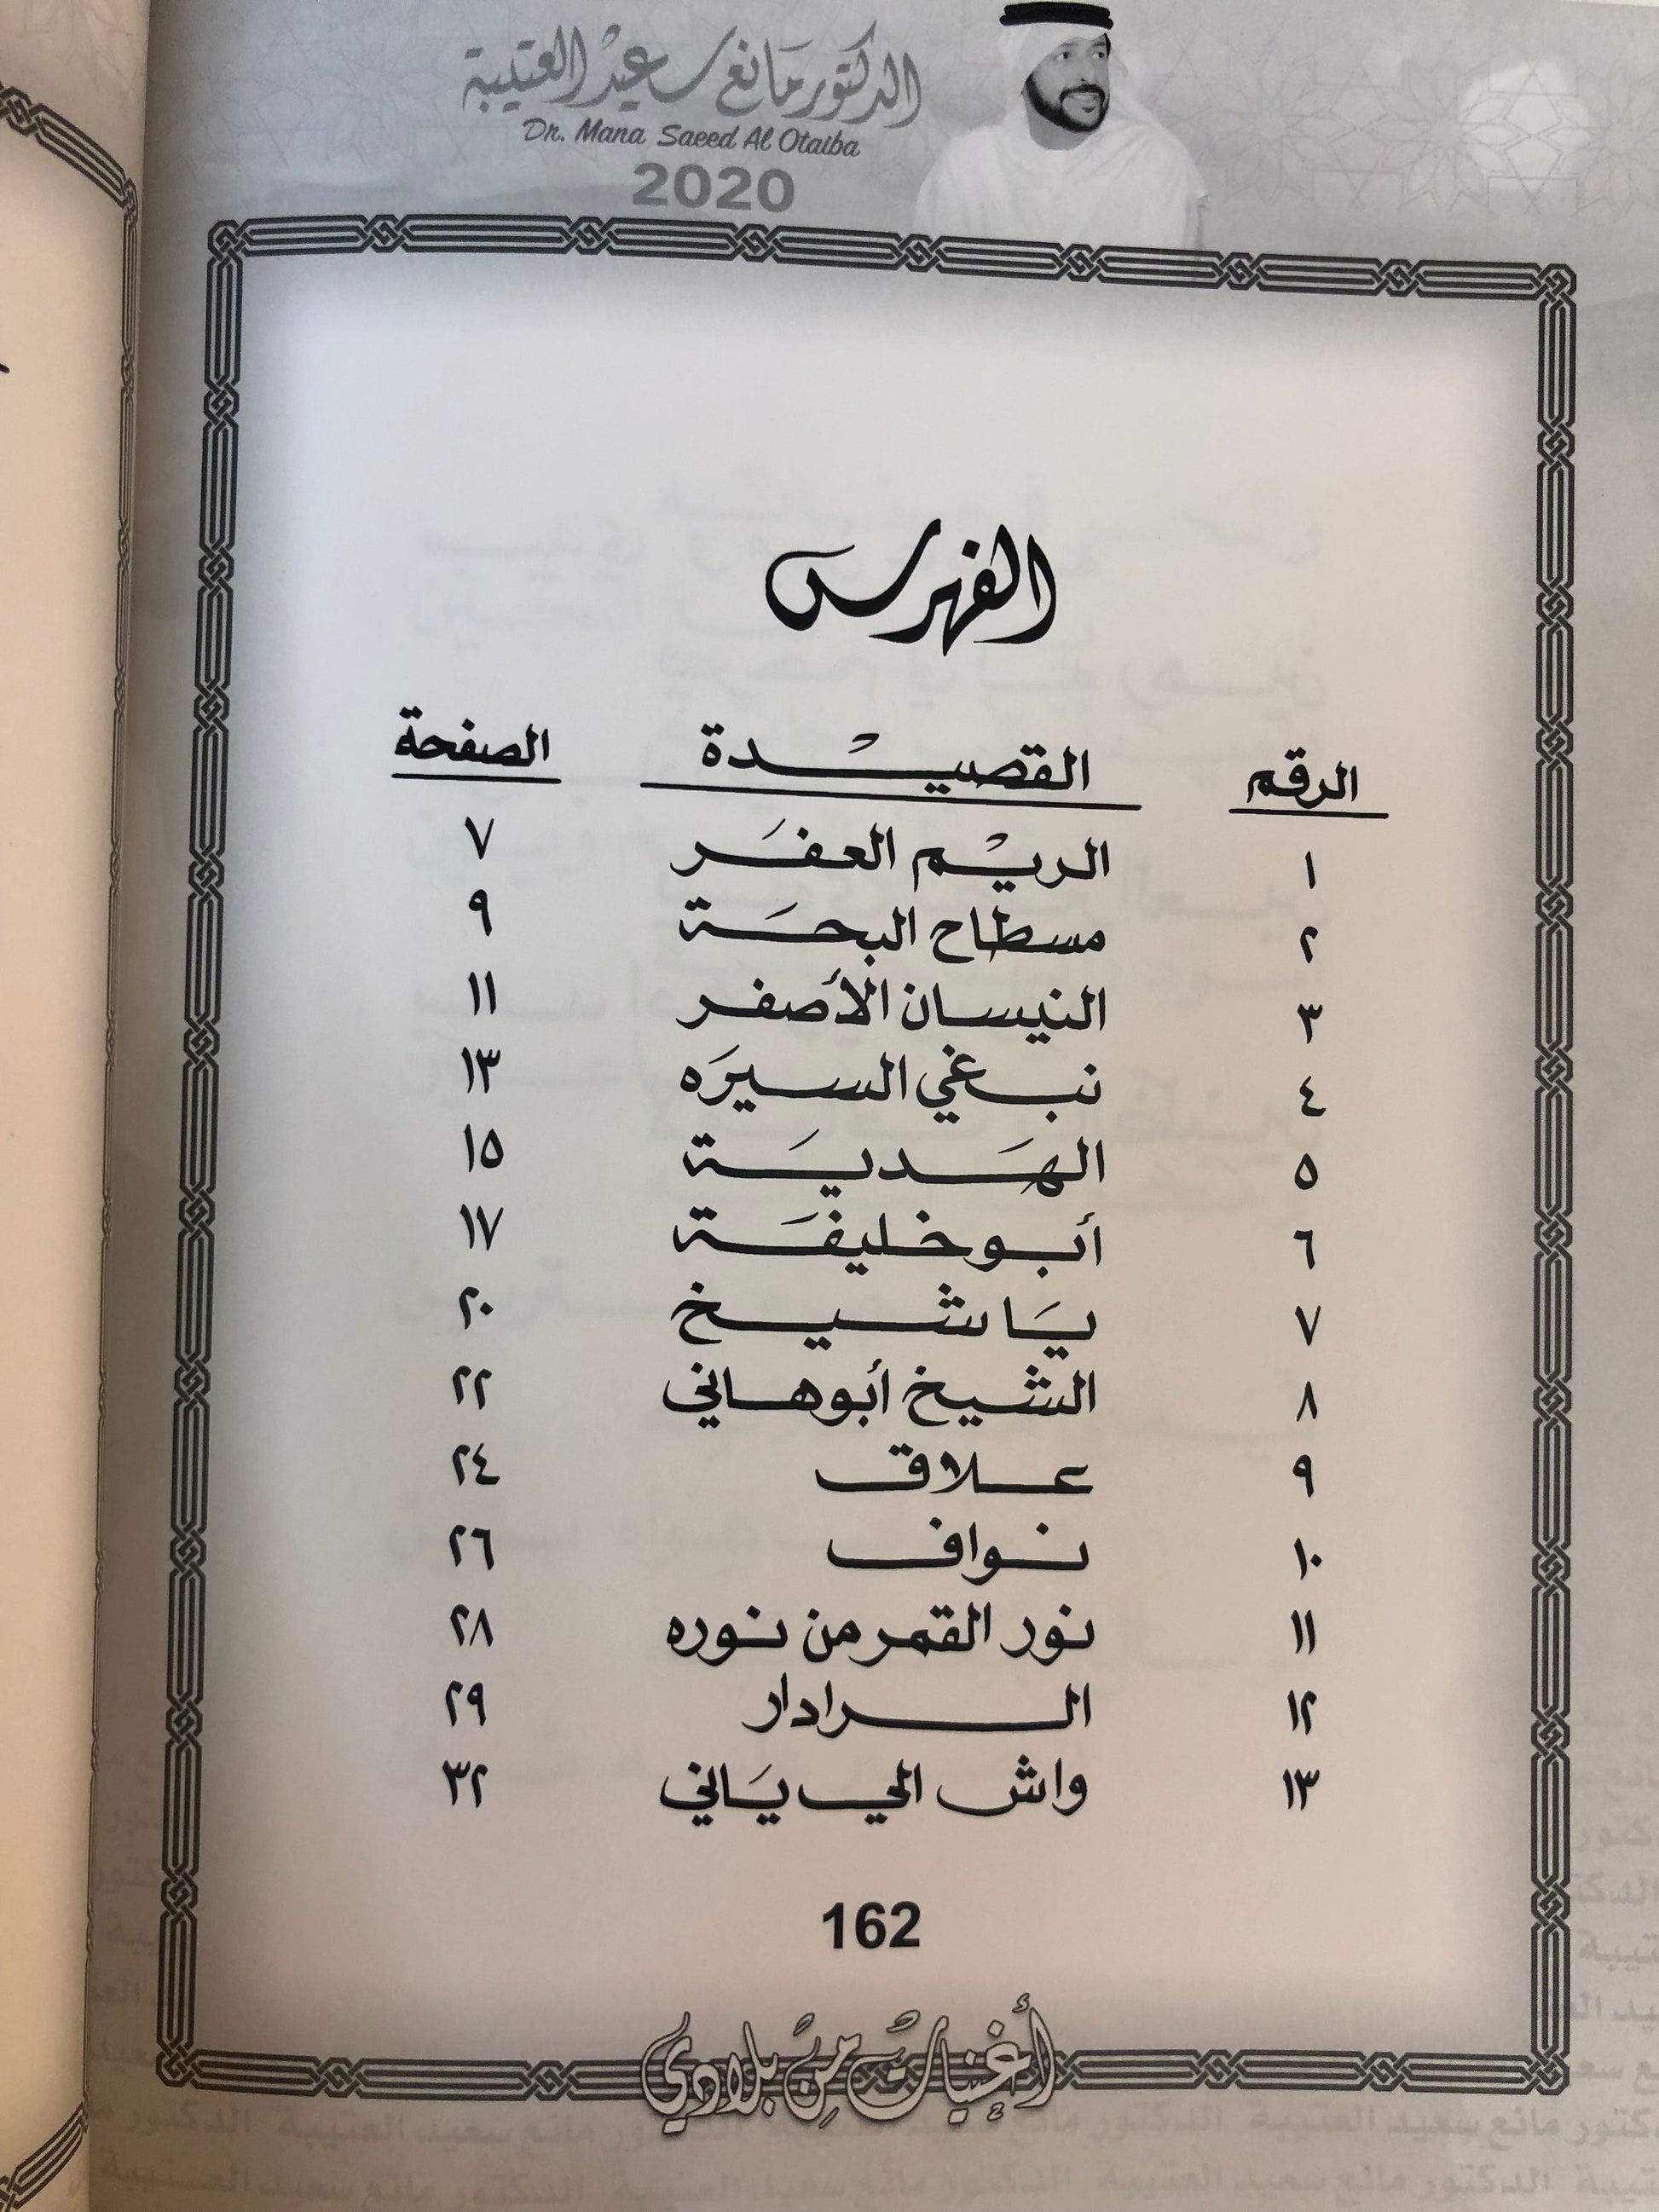 الدكتور مانع سعيد العتيبة
Dr. Mana Saeed Al Otaiba
2020
الفهرس
الرقم القصيدة الصفحة
١ الريْم العفَر ٧
٢ مسطاح البحَة ٩
٣ النيسان الأصفر ١١
٤ نبغي السيرَه ١٣
٥ الهَديَة ١٥
٦ أبو خليفَة ١٧
٧ يَا شيخ ٢٠
٨ الشيخ أبوهاني ٢٢
٩ علاق ٢٤
١٠ نواف ٢٦
١١ نور القمر من نوره ٢٨
١٢ الرادار ٢٩
١٣ واش الي يَاني ٣٢
162
أغنيات من بلادي
الدكتور مانع سعيد العتيبة الدكتور مانع سعيد العتيبة
الدكتور مانع سعيد العتيبة الدكتور مانع سعيد العتيبة